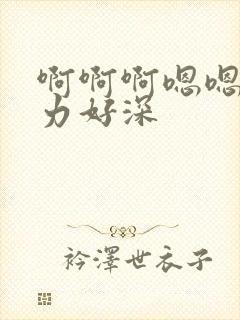 啊啊啊嗯嗯
力好深
衿澤世衣子